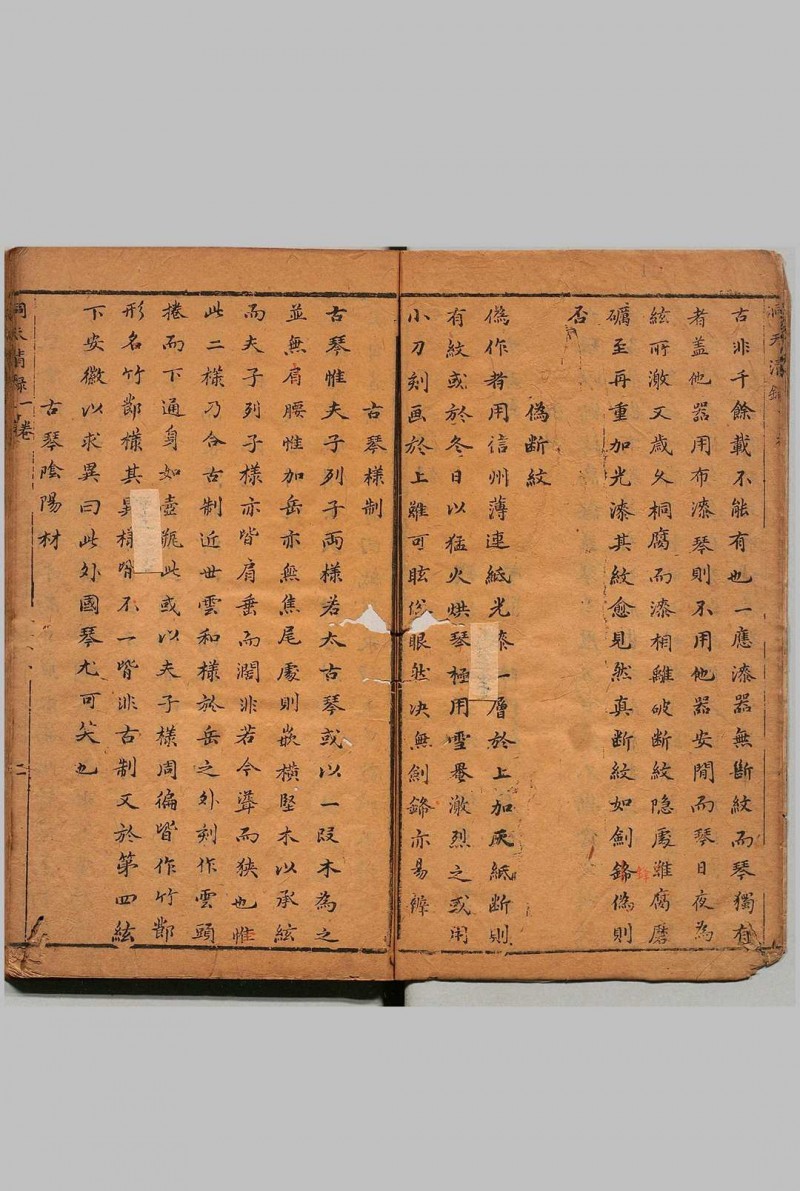 古非千餘載不能有也一應漆器無斷紋而琴獨有
者盖他器用布漆琴則不用他器安閒而琴日夜為
絃所激又歳久桐腐而漆相離破断紋隐處雖腐磨
礪至再重加光漆其紋愈見然真断紋如劍鋒偽則
否
偽断紋
偽作者用信州薄連紙光漆一層於上加灰紙断則
有紋或於冬日以猛火烘琴極用雪罨激烈之或用
小刀刻画於上雖可眩俗眼然决無劍鋒亦易辨
古琴様制
古琴惟夫子列子両様若太古琴或以一段木為之
並無肩腰惟加岳亦無焦尾處則嵌横堅木以承絃
而夫子列子様亦皆肩垂而濶非若今聳而狭也惟
此二様乃合古制近世雲和様於岳之外刻作雲頭
捲而下通身如壺瓶此或以夫子様周徧皆作竹莭
形名竹莭様其異様皆不一皆非古制又於第四絃
下安徽以求異曰此外國琴尤可笑也
古琴陰陽材
洞天清録 一卷
二